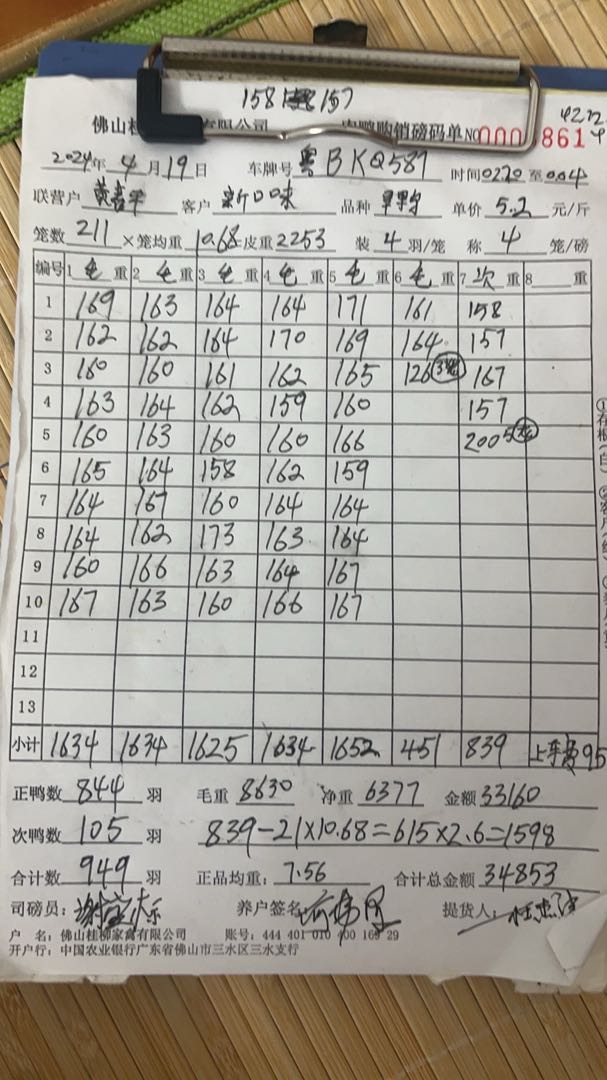 158 157
4272
佛山桂 有限公司 肉鸭购销磅码单 NO 000 861
2024年4月19日 车牌号 粤BKQ587 时间0220至
联营户 客户 新口味 品种 单价 5.2 元/斤
笼数 211 ×笼均重 10.68 皮重 2253 装 4 羽/笼 称 4 笼/磅
编号 1 毛 重 2 毛 重 3 毛 重 4 毛 重 5 毛 重 6 毛 重 7 次 重 8 重
1 169 163 164 164 171 161 158
2 162 162 164 170 169 164 157
3 160 160 161 162 165 126 3笼 167
4 163 164 162 159 160 157
5 160 163 160 160 166 200 5笼
6 165 164 158 162 159
7 164 167 160 164 164
8 164 162 173 163 164
9 160 166 163 164 167
10 167 163 160 166 167
11
12
13
小计 1634 1634 1625 1634 1652 451 839 上车费95
正鸭数 844 羽 毛重 8630 净重 6377 金额 33160
次鸭数 105 羽 839-21×10.68=615×2.6=1598
合计数 949 羽 正品均重: 7.56 合计总金额 34853
司磅员: 养户签名: 提货人:
户 名: 佛山桂柳家禽有限公司 账号: 444 401 010 400 169 29
开户行: 中国农业银行广东省佛山市三水区三水支行
①存根(白)